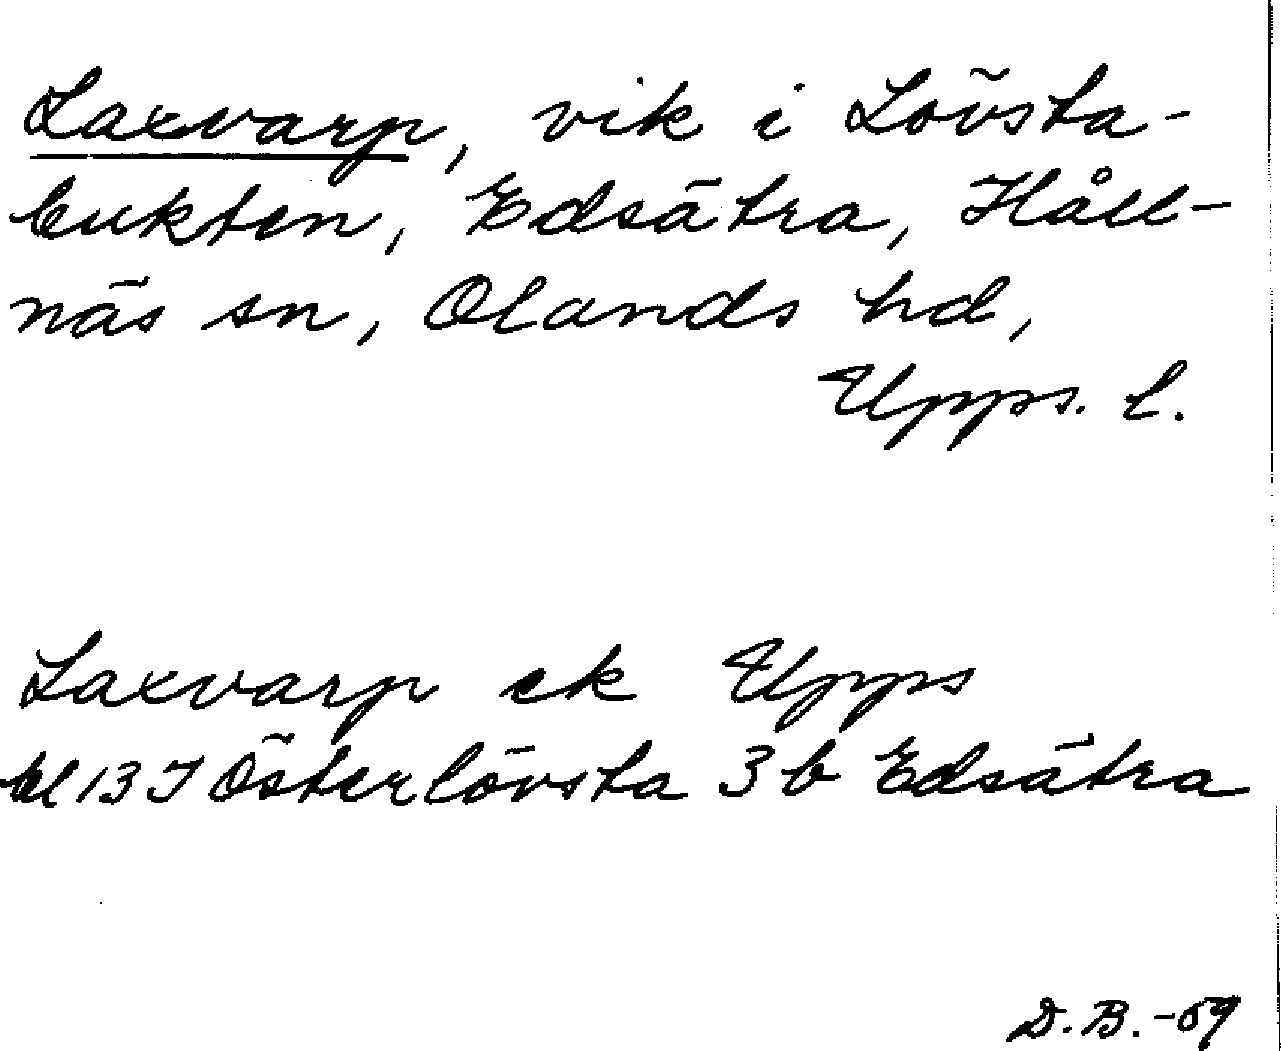 Laxvarp, vik i Lövsta-
bukten, Edsätra, Håll-
näs sn, Olands hd,
Upps. l.
Laxvarp ek Upps
13 I Österlövsta 3 b Edsätra
D.B.-69